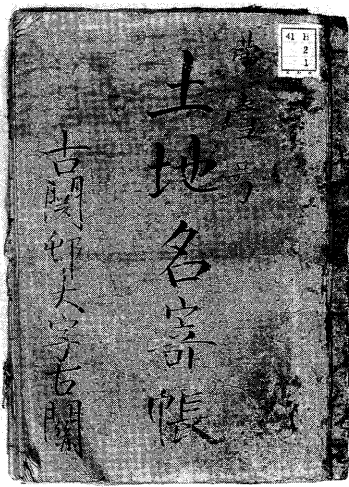 41 H
2
1
土地名寄帳
古関邨大字古関